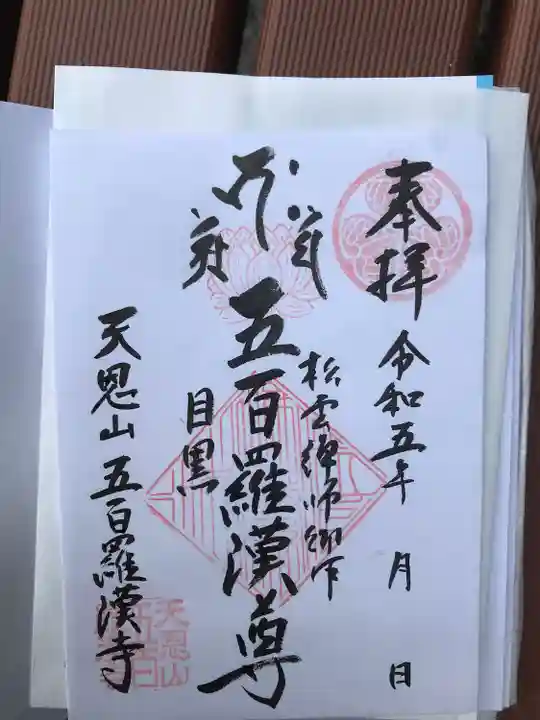 奉拝 令和五年 月 日
松雲禅師御作
五百羅漢尊
目黒
天恩山五百羅漢寺
天恩山